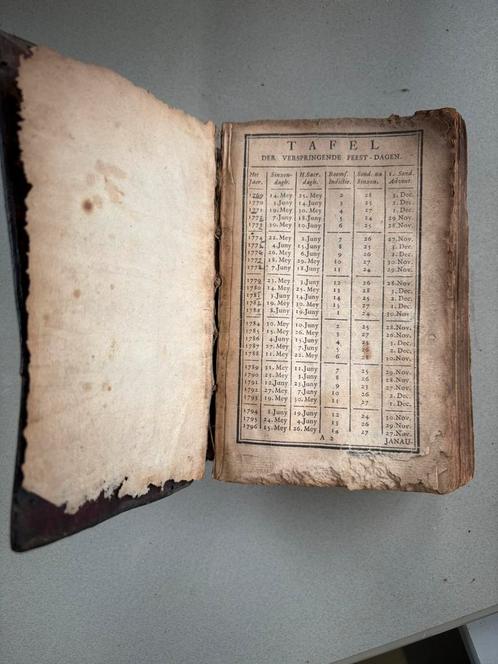 TAFEL
DER VERSPRINGENDE FEEST-DAGEN.
Het Sinxen- H.Sacr. Roomf. Sond. na 1. Sond.
Jaer. dagh. dagh. Indictie. Sinxen. Advent.
1769 14.Mey 25.Mey 2 28 3.Dec.
1770 3.Juny 14.Juny 3 25 2.Dec.
1771 19.Mey 30.Mey 4 27 1.Dec.
1772 7.Juny 18.Juny 5 24 29.Nov.
1773 30.Mey 10.Juny 6 25 28.Nov.
1774 22.Mey 2.Juny 7 26 27.Nov.
1775 4.Juny 15.Juny 8 25 3.Dec.
1776 26.Mey 6.Juny 9 26 1.Dec.
1777 18.Mey 29.Mey 10 27 30.Nov.
1778 7.Juny 18.Juny 11 24 29.Nov.
1779 23.Mey 3.Juny 12 26 28.Nov.
1780 14.Mey 25.Mey 13 28 3.Dec.
1781 3.Juny 14.Juny 14 25 2.Dec.
1782 19.Mey 30.Mey 15 27 1.Dec.
1783 8.Juny 19.Juny 1 24 30.Nov.
1784 30.Mey 10.Juny 2 25 28.Nov.
1785 15.Mey 26.Mey 3 27 27.Nov.
1786 4.Juny 15.Juny 4 25 3.Dec.
1787 27.Mey 7.Juny 5 26 2.Dec.
1788 11.Mey 22.Mey 6 28 30.Nov.
1789 31.Mey 11.Juny 7 25 29.Nov.
1790 23.Mey 3.Juny 8 26 28.Nov.
1791 12.Juny 23.Juny 9 23 27.Nov.
1792 27.Mey 7.Juny 10 26 2.Dec.
1793 19.Mey 30.Mey 11 27 1.Dec.
1794 8.Juny 19.Juny 12 24 30.Nov.
1795 24.Mey 4.Juny 13 25 29.Nov.
1796 15.Mey 26.Mey 14 27 27.Nov.
A 2 JANAU-